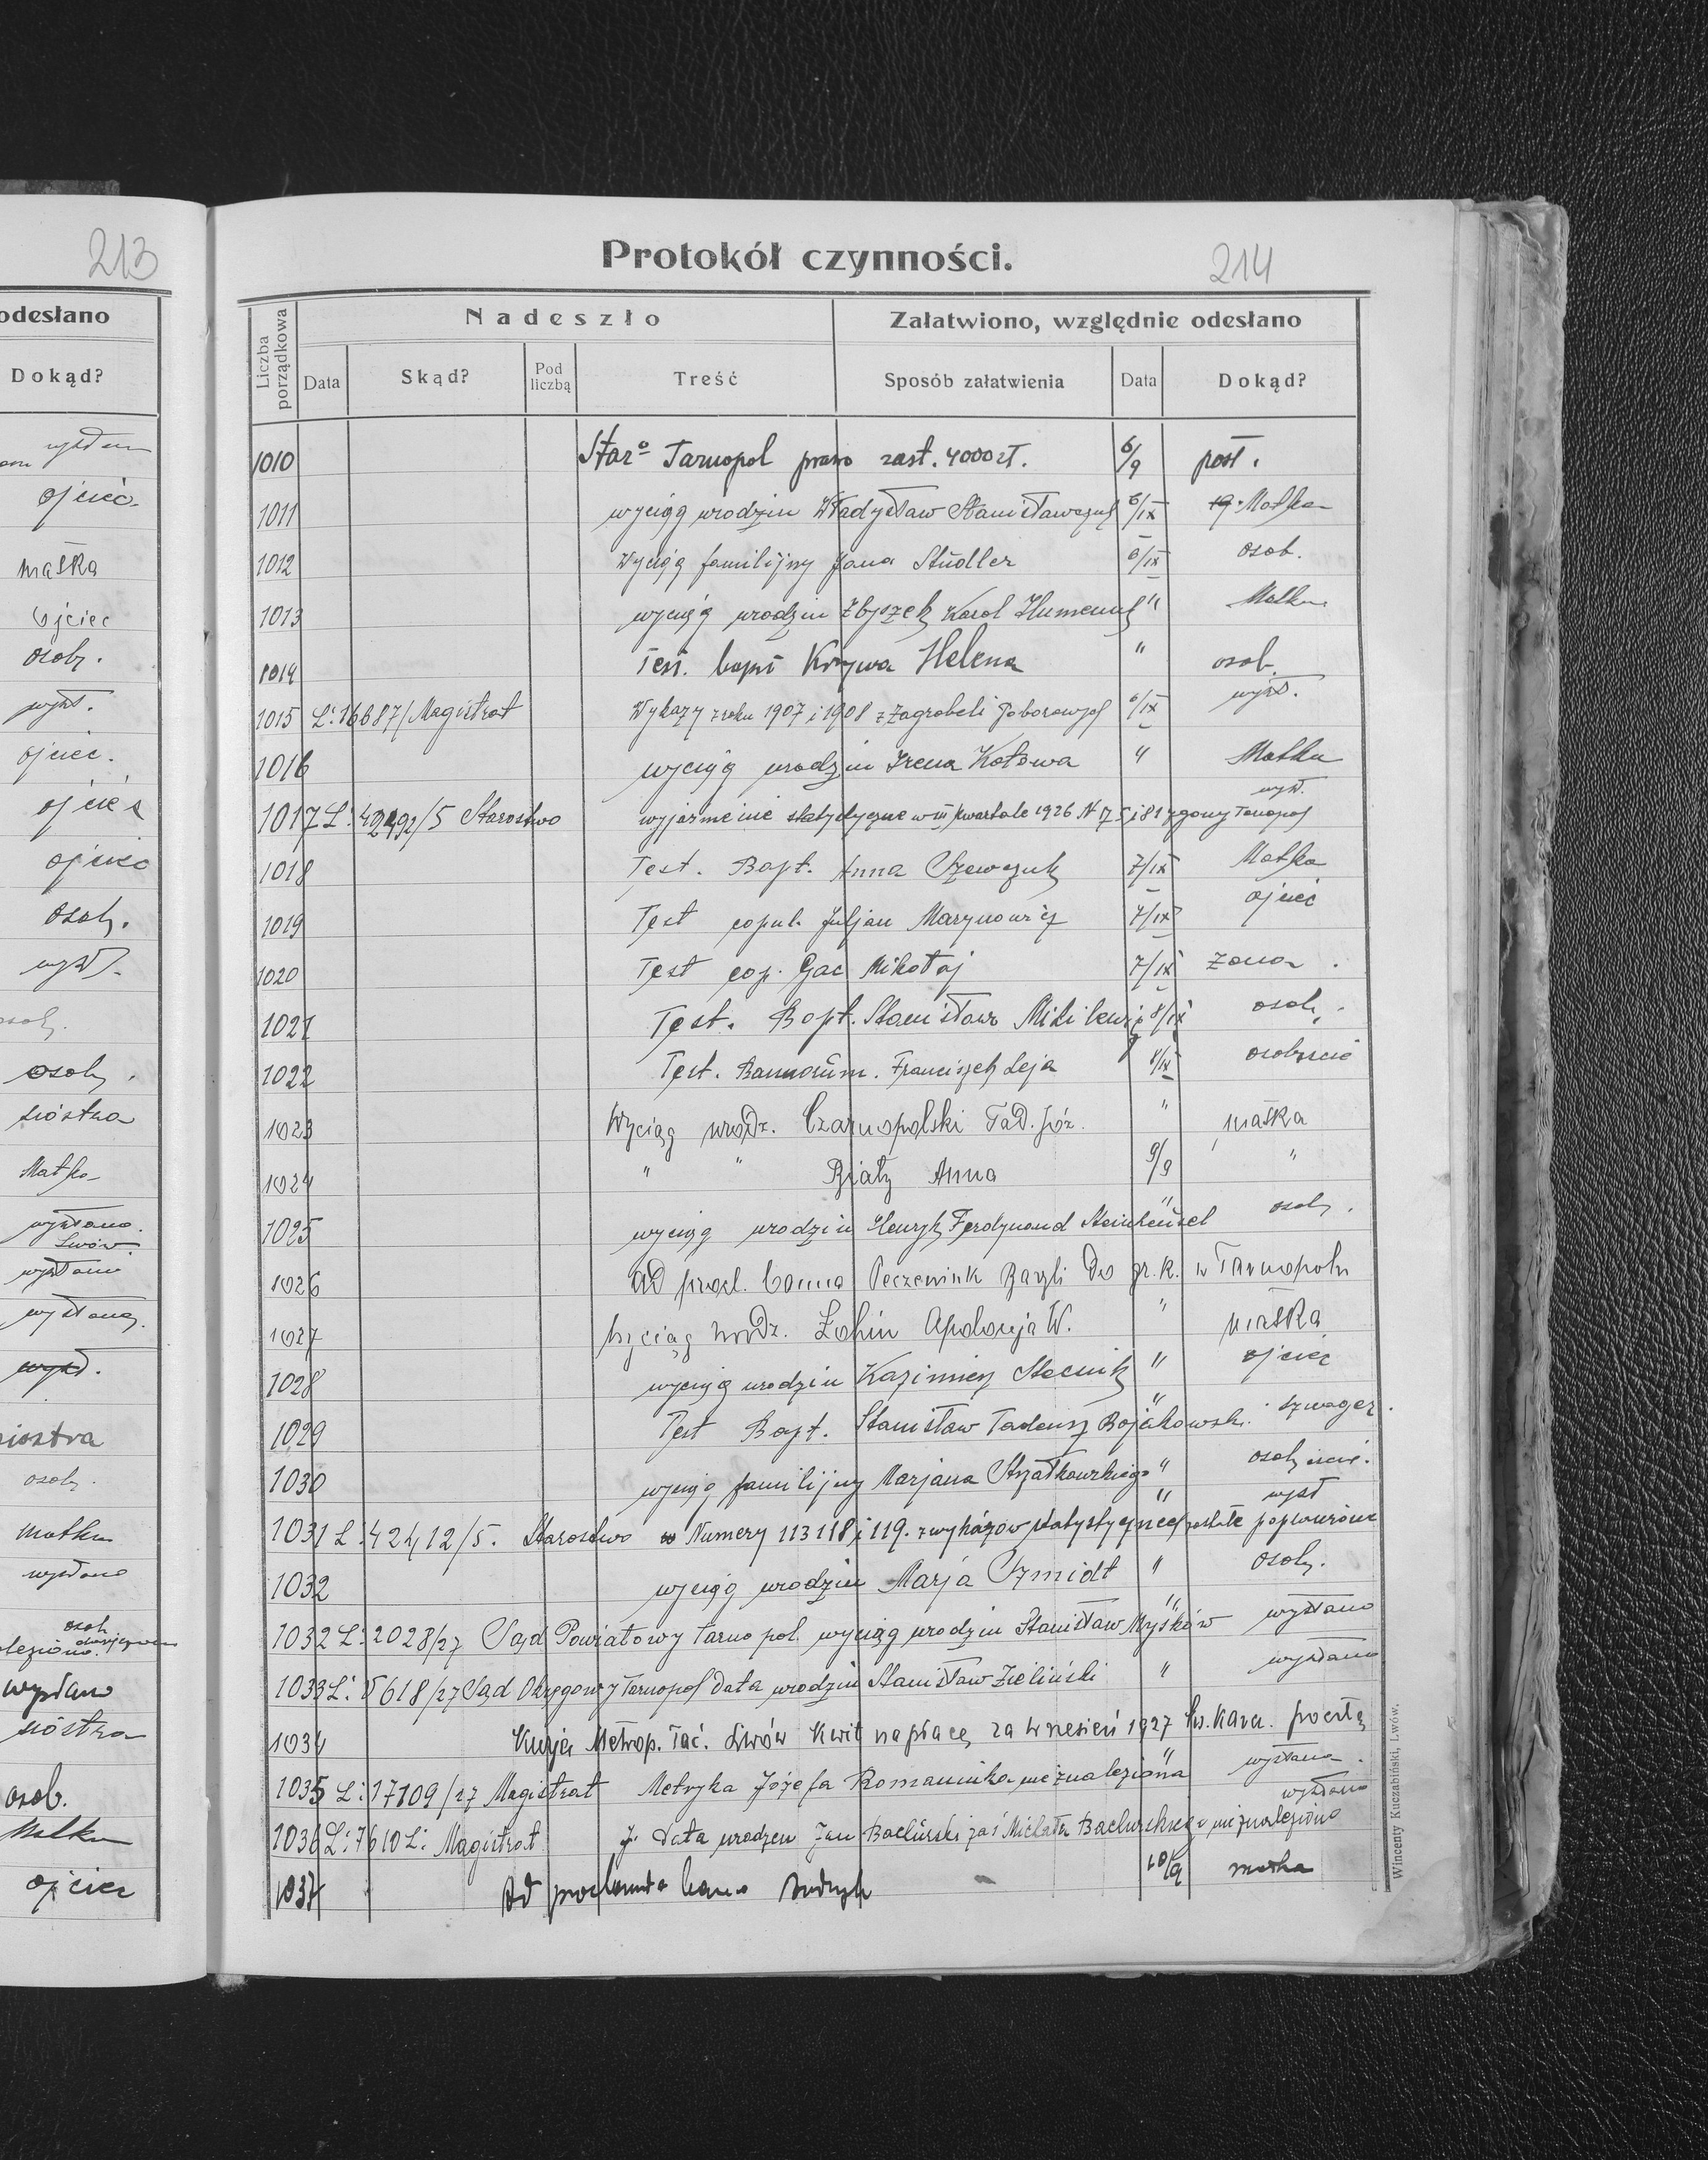 213
odesłano
Dokąd?
ojciec.
matka
Ojciec
osob.
wysł.
ojciec.
ojciec
ojciec
osob.
wysł.
osob.
osob.
siostra
Matka
wysłano.
Lwów.
wysłano
wysłano.
wysł.
siostra
osob.
matka
wysłano
osob.
wysłano
siostra
osob.
Matka
ojciec
Protokół czynności.
214
Liczba porządkowa
Nadeszło
Załatwiono, względnie odesłano
Data
Skąd?
Pod liczbą
Treść
Sposób załatwienia
Data
Dokąd?
1010 Staro Tarnopol prawo zast. 4000 zł. 6/9 post.
1011 wyciąg urodzin Władysław Stanisławczuk 6/IX Matka
1012 Wyciąg familijny Jana Studler 6/IX osob.
1013 wyciąg urodzin Zbyszek Karol Humeniuk " Matka
1014 Test. bapt Krzywa Helena " osob.
1015 L: 16687/Magistrat Wykazy z roku 1907 i 1908 z Zagrobeli Poborowych 6/IX wysł.
1016 wyciąg urodzin Irena Kotowa " Matka
1017 L: 42492/5 Starostwo wyjaśnienie statystyczne w III kwartale 1926 N 75 i 81 zgony Tarnopol wysł.
1018 Test. Bapt. Anna Szewczuk 7/IX Matka
1019 Test copul. Juljan Marynowicz 7/IX ojciec
1020 Test cop. Gac Mikołaj 7/IX Żona.
1021 Test. Bapt. Stanisław Mililewicz 8/IX osob.
1022 Test. Bannorum. Franciszek Leja 8/IX osobiście
1023 Wyciąg urodz. Czarnopolski Tad. Józ. " matka
1024 " " Biały Anna 9/9 "
1025 wyciąg urodzin Henryk Ferdynand Steinhensel " osob.
1026 Ad procl. Canna Peczeniuk Bazyli do gr. k. w Tarnopolu
1027 Wyciąg urodz. Łohin Apolonja W. " matka
1028 wyciąg urodzin Kazimierz Stecnik " ojciec
1029 Test Bapt. Stanisław Tadeusz Bojakowski. " szwager.
1030 wyciąg familijny Marjana Strzałkowskiego " osobiście.
1031 L: 42412/5. Starostwo Numery 113 118 i 119. z wykazów statystycznych zostałe poprawione " wysł
1032 wyciąg urodzin Marja Szmidt " osob.
1032 L: 2028/27 Sąd Powiatowy Tarnopol wyciąg urodzin Stanisław Myśków " wysłano
1033 L: 5618/27 Sąd Okręgowy Tarnopol Data urodzin Stanisław Zieliński " wysłano
1034 Kurja Metrop. łać. Lwów Kwit na płacę za wrzesień 1927 ks. Kara. pocztą
1035 L: 17109/27 Magistrat Metryka Józefa Romaniuka nie znaleziona " wysłano.
1036 L: 7610 L: Magistrat Data urodzen Jan Baclurski zaś Michała Baclurskiego nie znaleziono wysłano
1037 Ad proclamanda 10/9 matka
Wincenty Kuczabiński, Lwów.